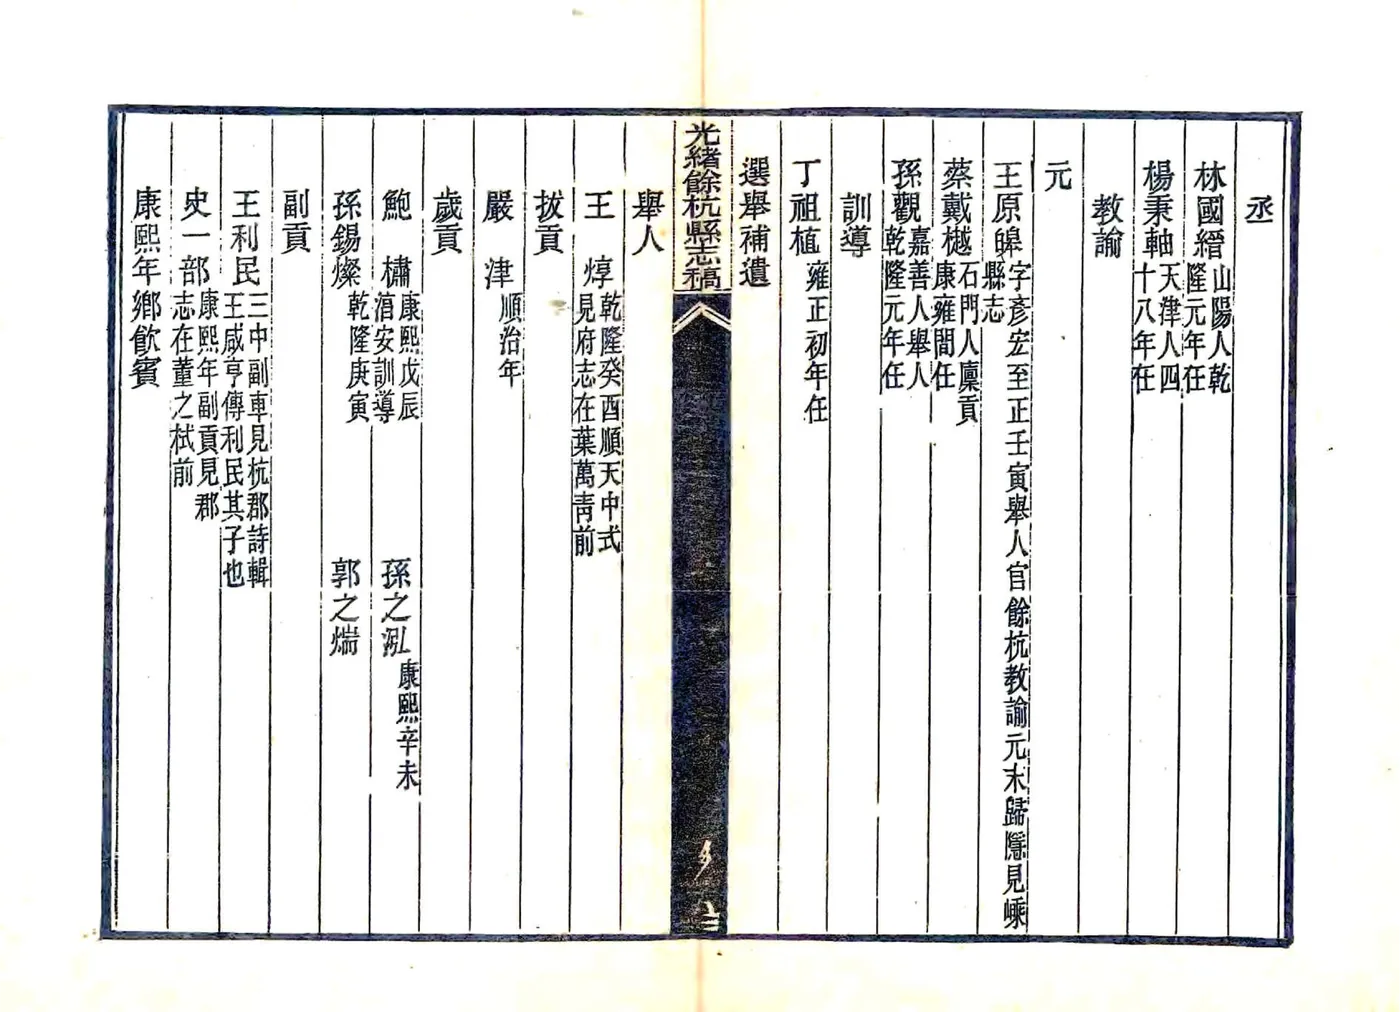 丞
林國縉山陽人乾
隆元年任
楊秉軸天津人四
十八年任
教諭
元
王原皞字彥宏至正壬寅舉人官餘杭教諭元末歸隱見嵊
縣志
蔡戴樾石門人廩貢
康雍間任
孫觀嘉善人舉人
乾隆元年任
訓導
丁祖植雍正初年任
選舉補遺
光緒餘杭縣志稿
舉人
王焞乾隆癸酉順天中式
見府志在葉萬青前
拔貢
嚴津順治年
歲貢
鮑櫹康熙戊辰
淯安訓導
孫之泓康熙辛未
孫錫燦乾隆庚寅
郭之煓
副貢
王利民三中副車見杭郡詩輯
王咸亨傳利民其子也
史一部康熙年副貢見郡
志在董之栻前
康熙年鄉飲賓